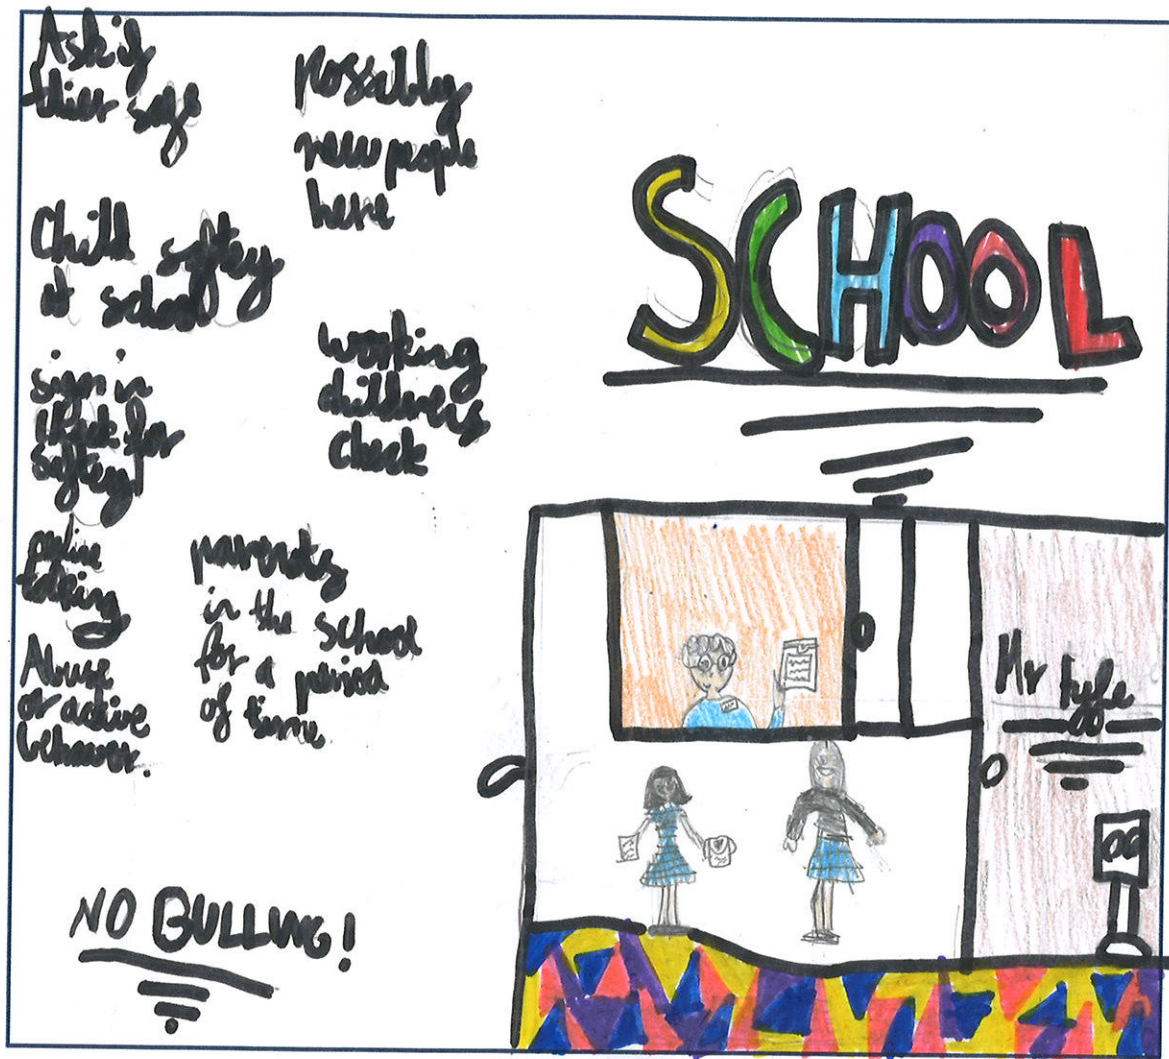 Ask if
thier safe
Child saftey
at school
sign in
check for
saftey
police
talking
Abuse
or active
behavior.
NO BULLING!
possibly
new people
here
working
childrens
check
parents
in the school
for a period
of time.
SCHOOL
Mr Fyfe